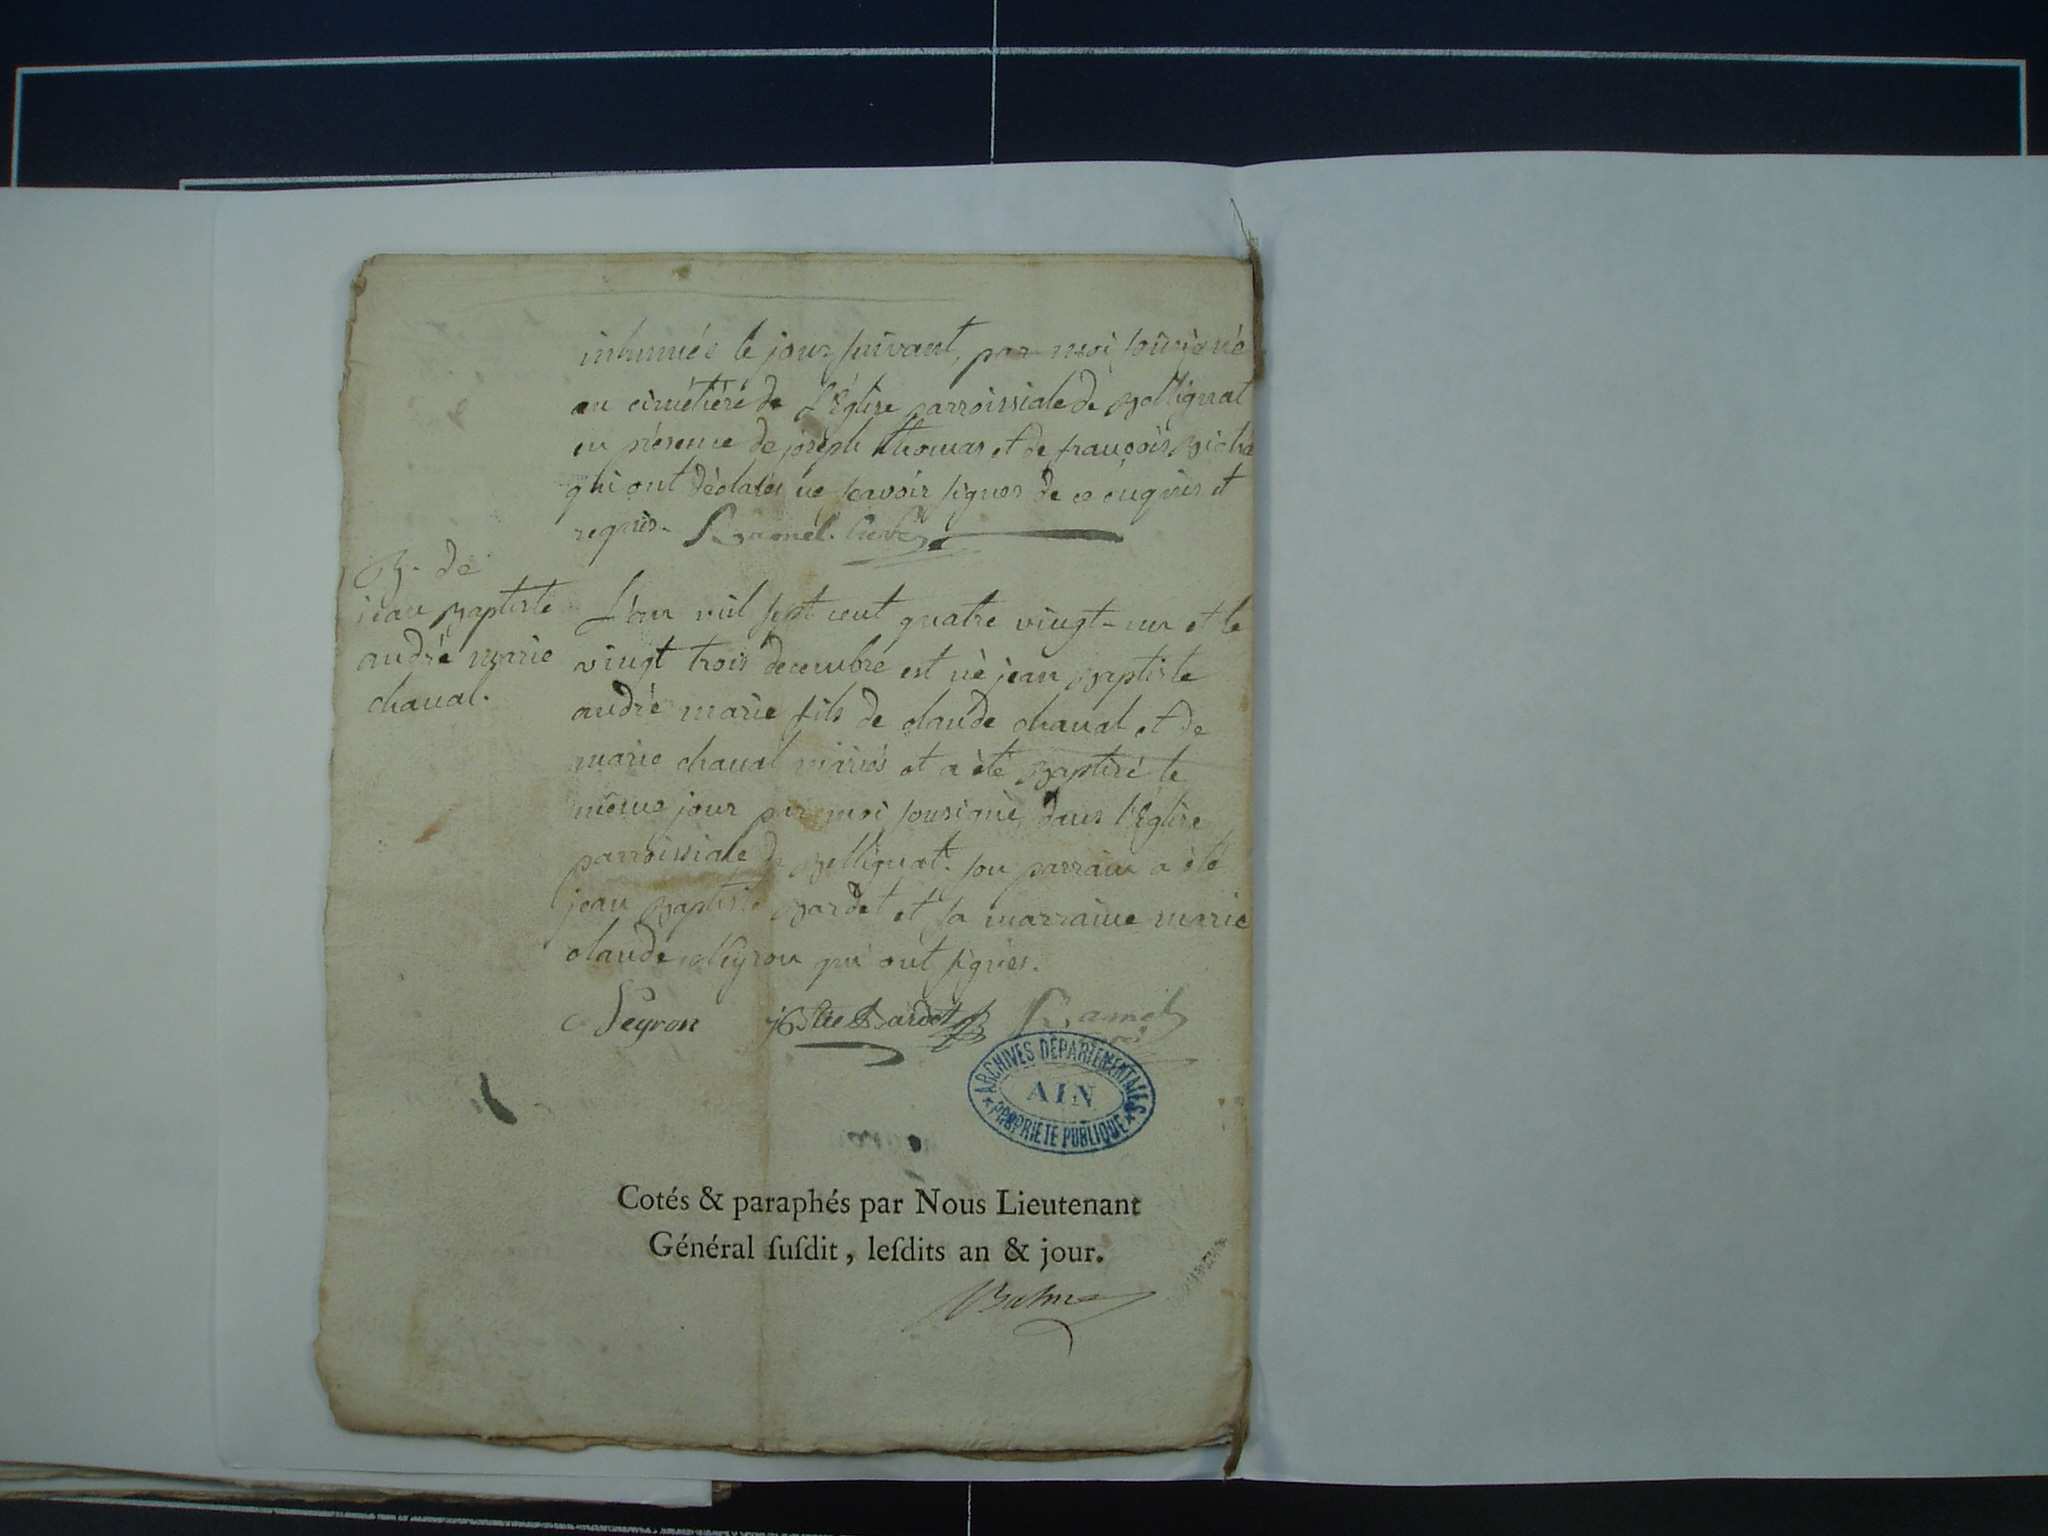 inhumée le jour suivant, par moi sousigné
au cimétiéré de L'Église parroissiale de Bellignat
en présence de joseph thomas et de françois
qui ont déclarés ne scavoir signer de ce enquis et
requis. Ramel. Curé
B. de
jean Baptiste
andré marie
chanal.
L'an mil sept cent quatre vingt-un et le
vingt trois decembre est né jean Baptiste
andré marie fils de claude chanal et de
marie chanal mariés et a été Baptisé le
même jour par moi sousigné dans l'Eglise
parroissiale de Bellignat. son parrain a été
jean Baptiste Bardet et sa marraine marie
claude Neyron qui ont signés.
Neyron Bardet Ramel
ARCHIVES DÉPARTEMENTALES
AIN
PROPRIÉTÉ PUBLIQUE
Cotés & paraphés par Nous Lieutenant
Général ſuſdit, leſdits an & jour.